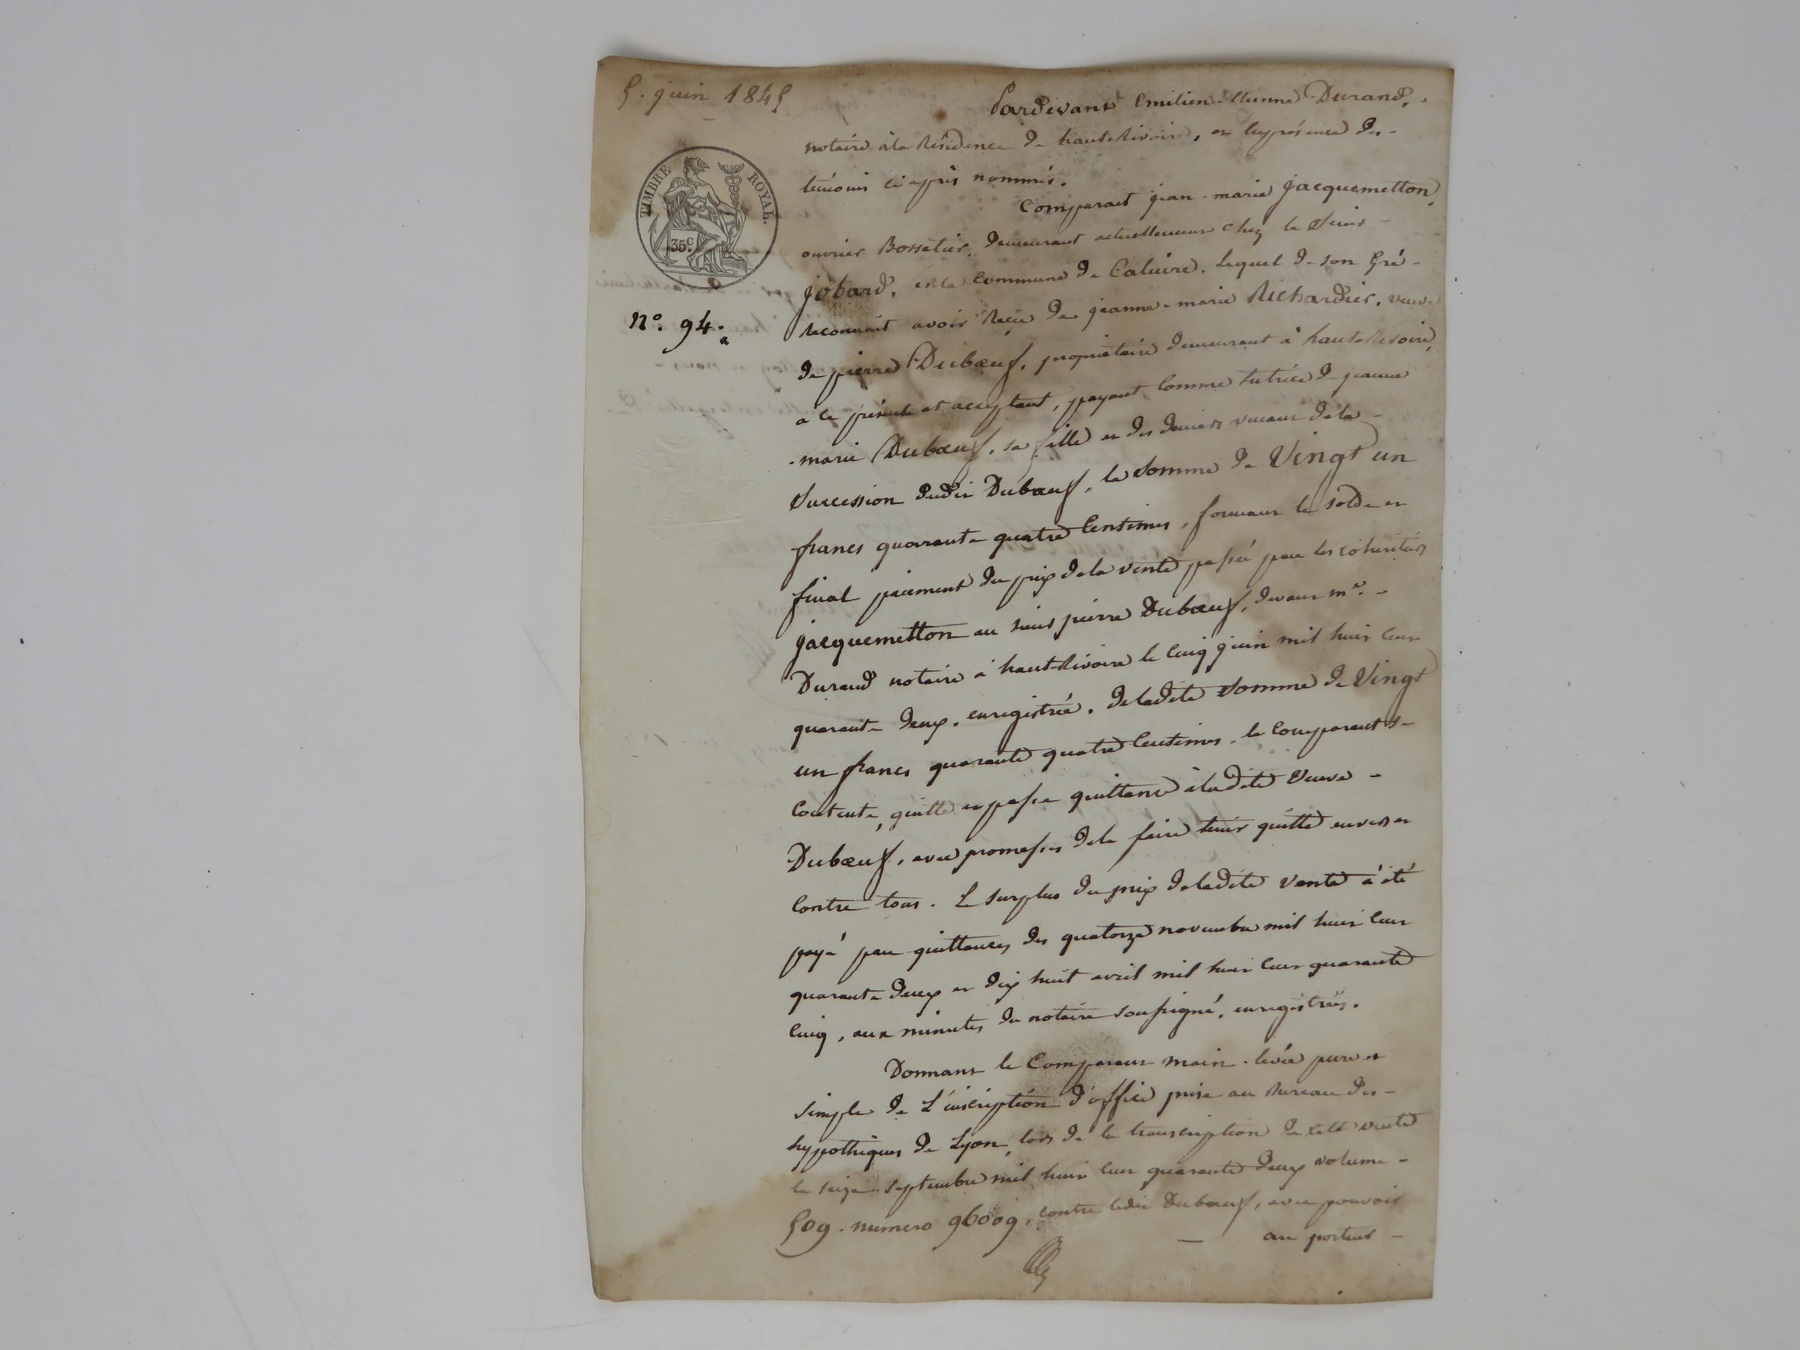 5. juin 1845
Pardevant Emilien-Etienne Durand,
notaire à la Résidence de haute-Rivoire, en la présence des-
témoins ci après nommés.
TIMBRE ROYAL.
35c
Comparait jean-marie jacquemetton,
ouvrier Bossetier, demeurant actuellement chez le sieur-
jobard, en la commune de Caluire. Lequel de son Gré-
N° 94.
Reconnait avoir Reçu de jeanne-marie Richardier, veuve
de pierre Dubœuf, propriétaire demeurant à haute-Rivoire,
a ce présente et acceptant, payant comme tutrice de jeanne
-marie Dubœuf, sa fille et des deniers venant de la-
Succession dudit Dubœuf, la somme de Vingt un
francs quarante quatre Centimes, formant le solde et
final paiement du prix de la vente passée par les cohéritiers
jacquemetton au sieur pierre Dubœuf, devant me.-
Durand notaire à haute-Rivoire le cinq juin mil huit cent
quarante deux, enregistrée. de ladite somme de Vingt
un francs quarante quatre Centimes, le comparant se-
contente, quitte et passe quittance à ladite Veuve-
Dubœuf, avec promesses de la faire tenir quitte envers et
contre tous. Le surplus du prix de ladite vente a été
payé par quittances des quatorze novembre mil huit cent
quarante deux et dix huit avril mil huit cent quarante
cinq, aux minutes du notaire soussigné, enregistrées.
Donnant le Comparant main-levée pure et
simple de L'inscription d'office prise au Bureau des-
hypothèques de Lyon, lors de la transcription de cette vente
le seize septembre mil huit cent quarante deux volume-
509. numero 96009, contre ledit Dubœuf, avec pouvoir
au porteur-